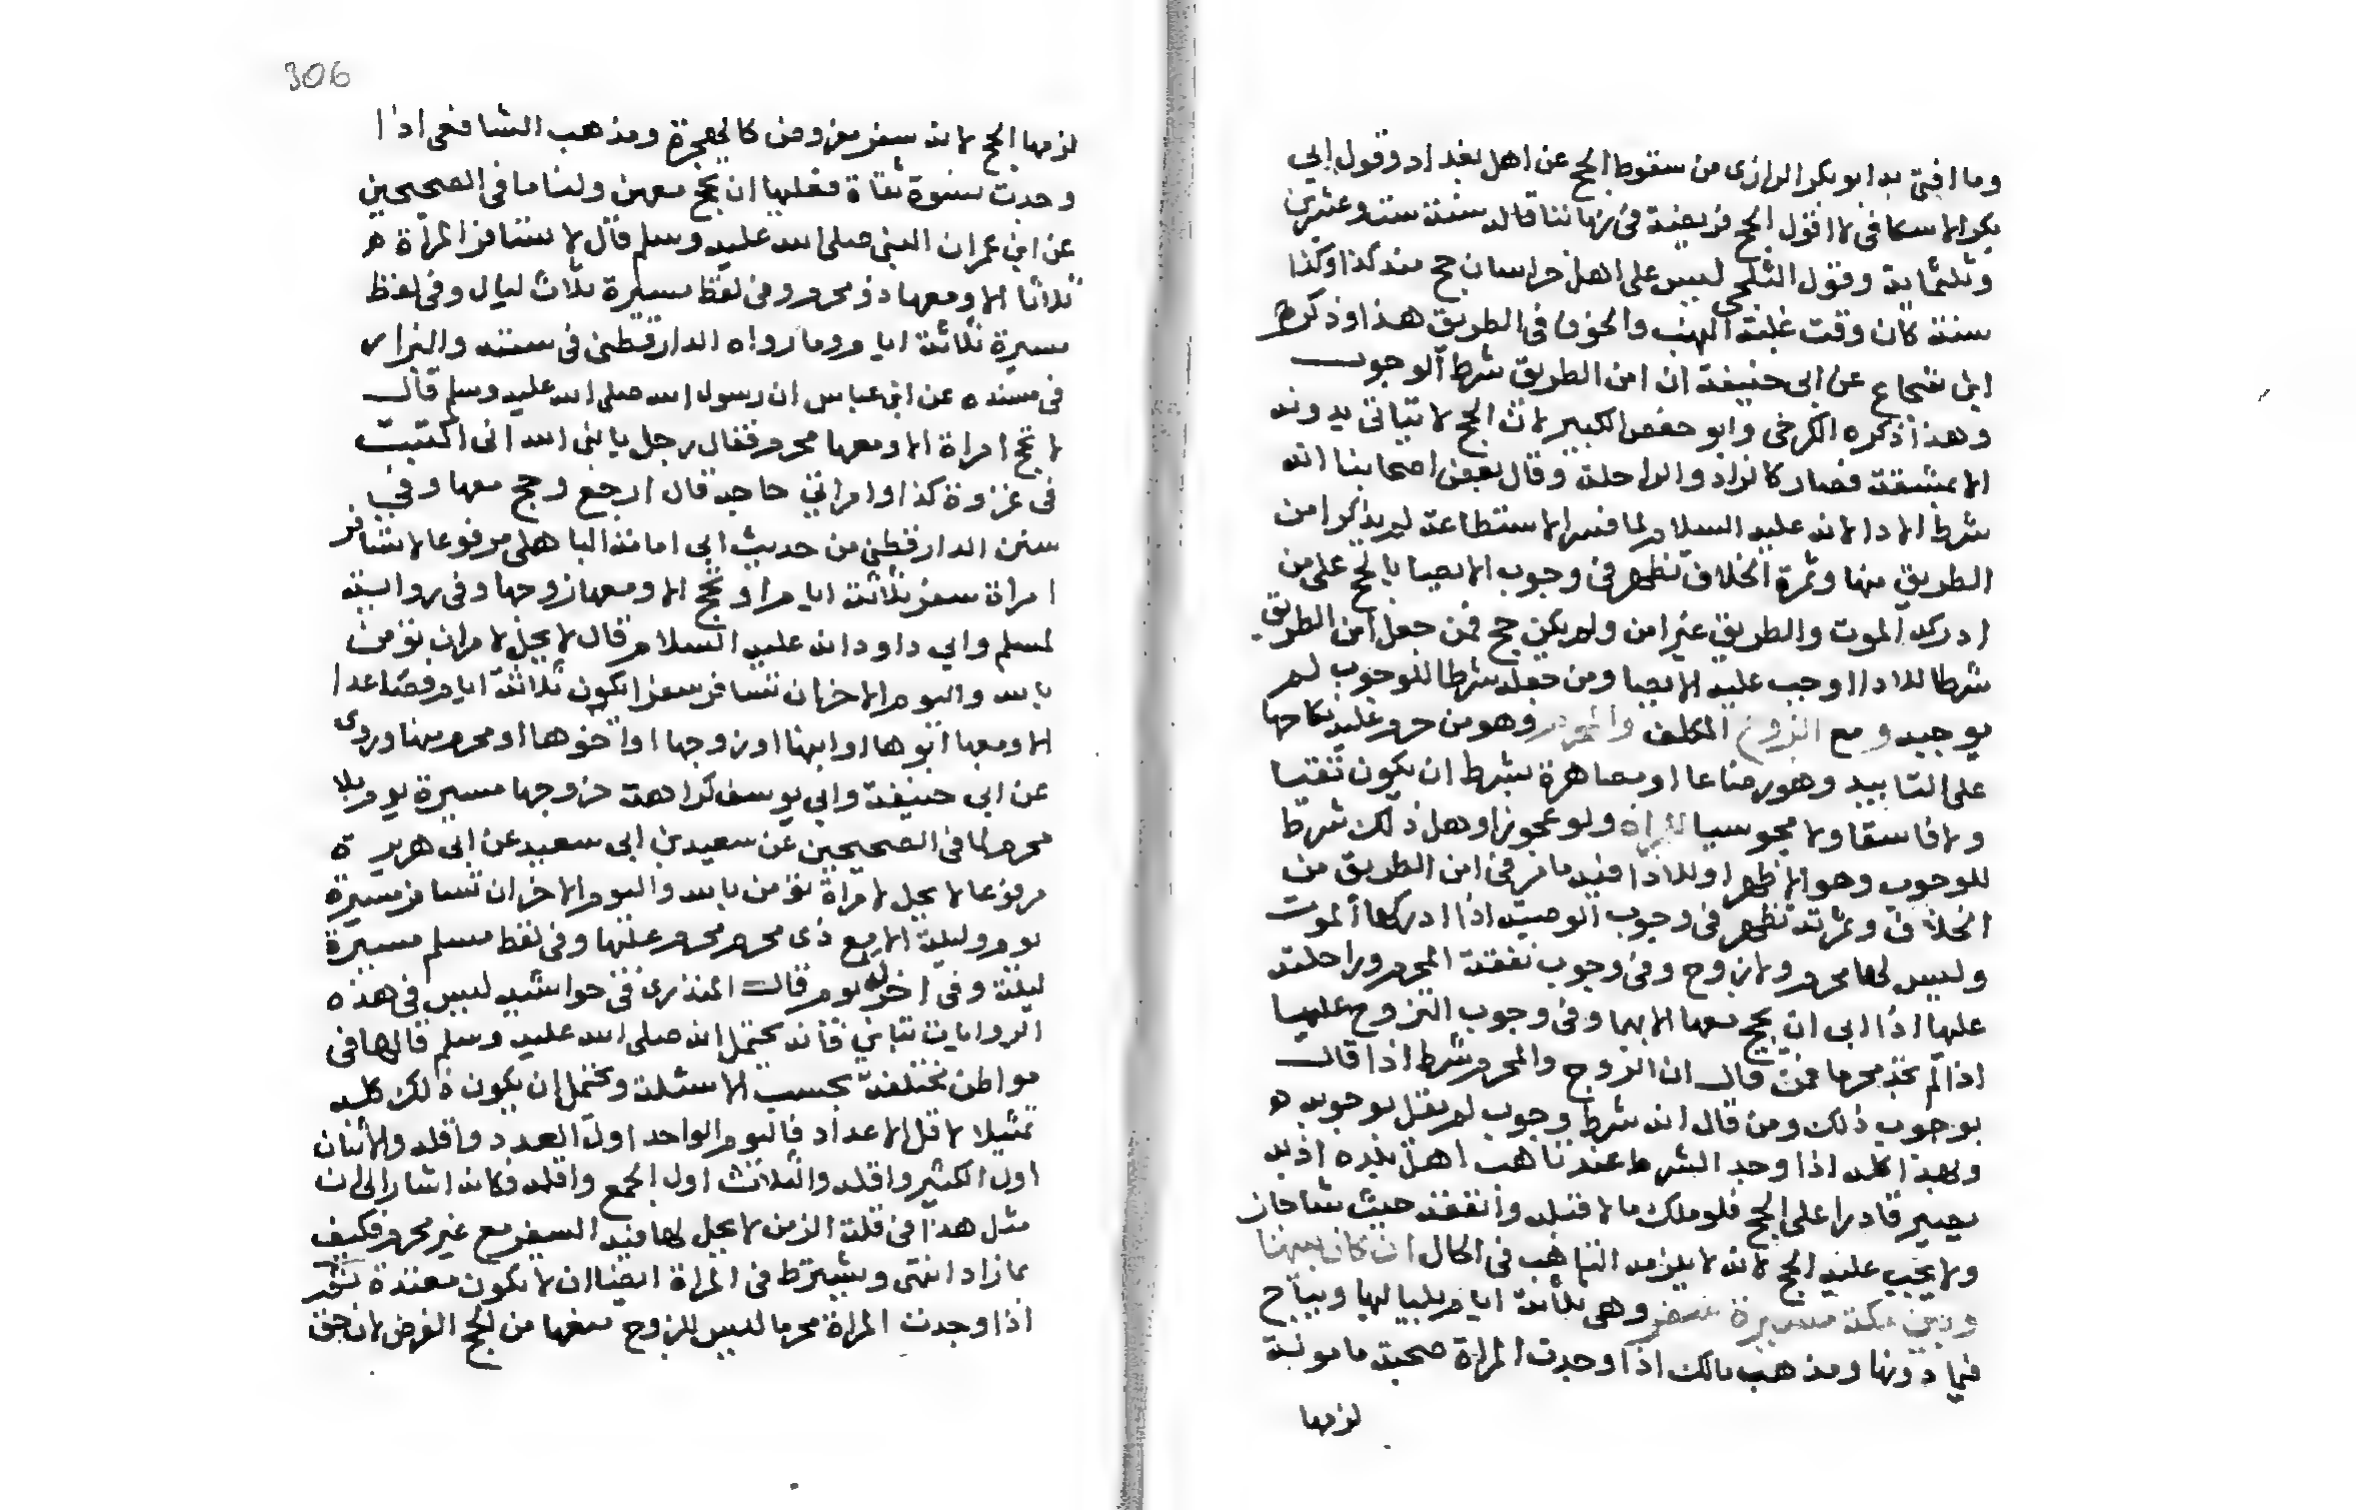 وما افتى به ابو بكر الرازى من سقوط الحج عن اهل بغداد وقول ابي
بكر الاسكافى لا اقول الحج فريضة فى زماننا قاله سنة ست وعشرين
وثلثماية وقول الثلجى ليس على اهل خراسان حج منذ كذا وكذا
سنة كان وقت غلبة النهب والخوف فى الطريق هذا وذكر
ابن شجاع عن ابى حنيفة ان امن الطريق شرط الوجوب
وهذا ذكره الكرخى وابو حفص الكبير لان الحج لا يتاتى بدونه
الا بمشقة فصار كالزاد والراحلة وقال بعض اصحابنا انه
شرط الادا لانه عليه السلام لما فسر الاستطاعة لم يذكر امن
الطريق منها وثمرة الخلاف تظهر فى وجوب الايصا بالحج على من
ادركه الموت والطريق غير امن ولم يكن حج فمن جعل امن الطريق
شرطا للادا اوجب عليه الايصا ومن جعله شرطا للوجوب لم
يوجبه ومع الزوج المكلف والمحرم وهو من حرم عليه نكاحها
على التابيد وهو رضاعا او مصاهرة بشرط ان يكون ثقتا
ولا فاسقا ولا مجوسيا للمراة ولو عجوزا وهل ذلك شرط
للوجوب وهو الاظهر او للادا فيه ما فى امن الطريق من
الخلاف وثمرته تظهر فى وجوب الوصية اذا ادركها الموت
وليس لها محرم ولا زوج وفى وجوب نفقة المحرم وراحلته
عليها اذا ابى ان يحج معها الا بهما وفى وجوب التزوج عليها
اذا لم تجد محرما فمن قال ان الزوج والمحرم شرط اذا قال
بوجوب ذلك ومن قال انه شرط وجوب لم يقل بوجوبه
وهذا كله اذا وجد الشرط عند تاهب اهل بلده اذ به
يصير قادرا على الحج فلو ملك مالا قبله وانفقه حيث شا جاز
ولا يجب عليه الحج لانه لا يلزمه التاهب فى الحال ان كان بينها
وبين مكة مسيرة سفر وهى ثلاثة ايام بلياليها ويباح
فيما دونها ومذهب مالك اذا وجدت المراة صحبة مامونة
لزمها
306
لزمها الحج لانه سفر مفروض كالهجرة ومذهب الشافعى اذا
وجدت نسوة ثقاة فعليها ان تحج معهن ولنا ما فى الصحيحين
عن ابن عمر ان النبى صلى الله عليه وسلم قال لا تسافر المراة
ثلاثا الا ومعها ذو محرم وفى لفظ مسيرة ثلاث ليال وفى لفظ
مسيرة ثلاثة ايام وما رواه الدارقطنى فى سننه والبزار
فى مسنده عن ابن عباس ان رسول الله صلى الله عليه وسلم قال
لا تحج امراة الا ومعها محرم فقال رجل يا نبى الله انى اكتتبت
فى غزوة كذا وامراتى حاجة قال ارجع وحج معها وفى
سنن الدارقطنى من حديث ابى امامة الباهلى مرفوعا لا تسافر
امراة سفر ثلاثة ايام او تحج الا ومعها زوجها وفى رواية
لمسلم وابي داود انه عليه السلام قال لا يحل لامراة تؤمن
بالله واليوم الاخر ان تسافر سفرا يكون ثلاثة ايام فصاعدا
الا ومعها ابوها او ابنها او زوجها او اخوها او محرم منها وروى
عن ابي حنيفة وابي يوسف كراهة خروجها مسيرة يوم بلا
محرم لما فى الصحيحين عن سعيد بن ابى سعيد عن ابى هريرة
مرفوعا لا يحل لامراة تؤمن بالله واليوم الاخر ان تسافر مسيرة
يوم وليلة الا مع ذى محرم محرم عليها وفى لفظ مسلم مسيرة
ليلة وفى اخر له يوم قال المنذرى فى حواشيه ليس فى هذه
الروايات تباين فانه يحتمل انه صلى الله عليه وسلم قالها فى
مواطن مختلفة بحسب الاسئلة ويحتمل ان يكون ذلك كله
تمثيلا لاقل الاعداد فاليوم الواحد اول العدد واقله والاثنان
اول الكثير واقله والثلاث اول الجمع واقله فكانه اشار الى ان
مثل هذا فى قلة الزمن لا يحل لها فيه السفر مع غير محرم فكيف
بما زاد انتهى ويشترط فى المراة ايضا ان لا يكون معتدة ثم
اذا وجدت المراة محرما ليس للزوج منعها من الحج الفرض لان حق